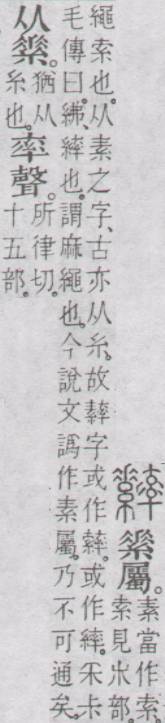 素屬。素當作索。
索見𣎵部。
繩索也。从素之字、古亦从糸。故字或作。或作繂。采尗
毛傳曰。紼、繂也。謂麻繩也。今說文譌作素屬。乃不可通矣。
从素。猶从糸也。率聲。所律切。十五部。